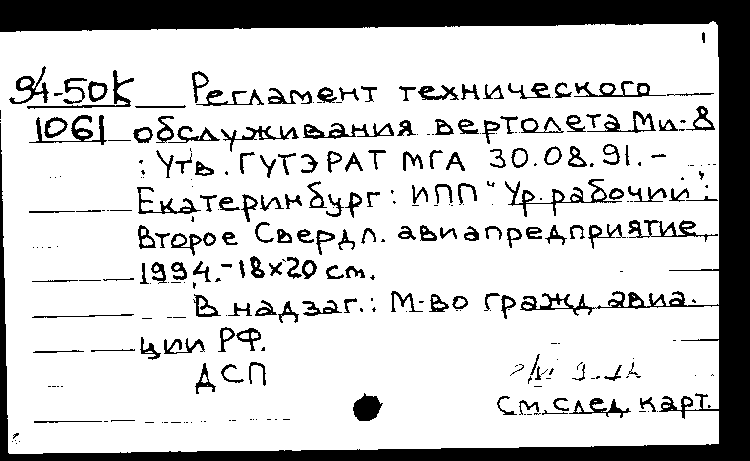 1
94-50К Регламент технического
1061 обслуживания вертолета Ми-8
: Утв. ГУТЭРАТ МГА 30.08.91. –
Екатеринбург: ИПП "Ур. рабочий":
Второе Свердл. авиапредприятие,
1994. – 18х20 см.
В надзаг.: М-во гражд. авиа.
ции РФ.
ДСП
См. след. карт.